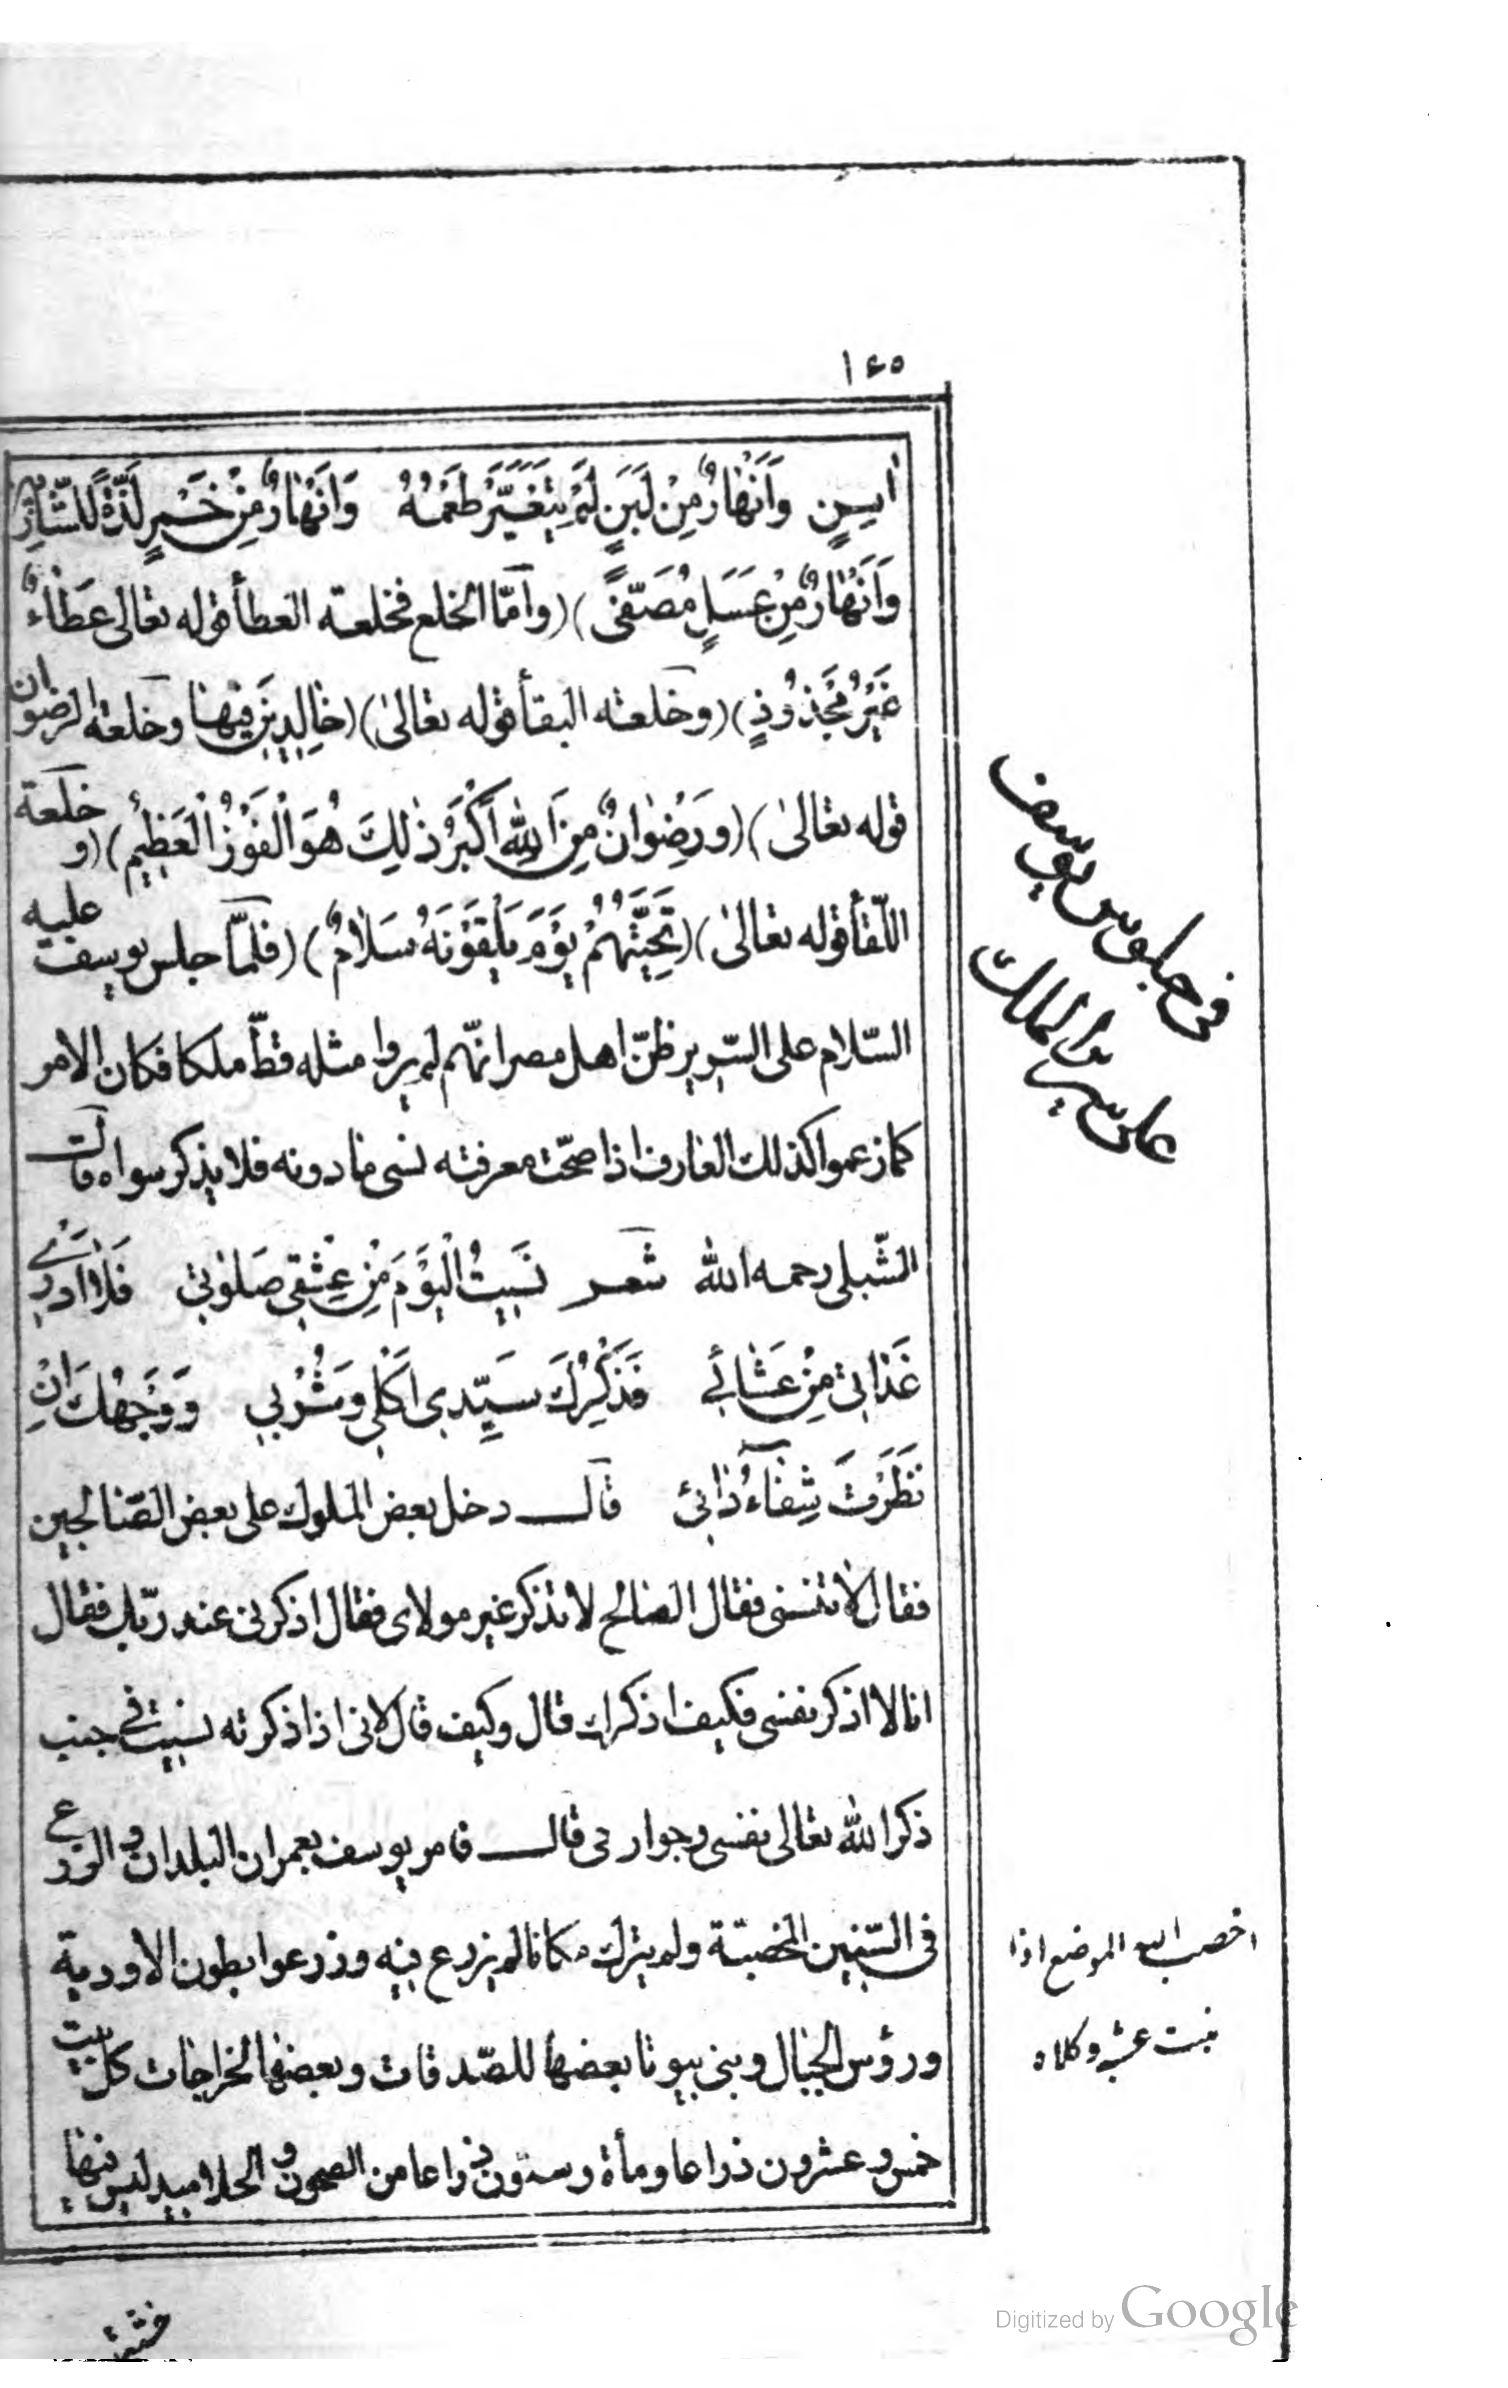 ١٤٥
اٰسِنٍ وَاَنْهَارٌ مِنْ لَبَنٍ لَمْ يَتَغَيَّرْ طَعْمُهُ وَاَنْهَارٌ مِنْ خَمْرٍ لَذَّةً لِلشَّارِبِينَ
وَاَنْهَارٌ مِنْ عَسَلٍ مُصَفًّى) (وامّا الخلع فخلعته العطأ قوله تعالى عَطَاءً
غَيْرَ مَجْذُوذٍ) (وخلعته البقأ قوله تعالىٰ) (خَالِدِينَ فِيهَا وخلعته الرضوان
قوله تعالىٰ) (وَرِضْوَانٌ مِنَ اللهِ اَكْبَرُ ذٰلِكَ هُوَ الْفَوْزُ الْعَظِيمُ) (و خلعة
اللّقأ قوله تعالىٰ) (تَحِيَّتُهُمْ يَوْمَ يَلْقَوْنَهُ سَلَامٌ) (فلمّا جلس يوسف عليه
السّلام على السّرير ظنّ اهل مصر انّهم لم يروا مثله قطّ ملكا فكان الامر
كما زعموا كذلك العارف اذا صحّت معرفته نسى ما دونه فلا يذكر سواه قالت
الشّبلى رحمه الله شعر نَسِيتُ الْيَوْمَ مِنْ عِشْقِي صَلوٰتِي فَلَا اَدْرِي
غَذَائِي مِنْ عَشَائِي فَذِكْرُكَ سَيِّدِي اَكْلِي وَشُرْبِي وَوَجْهُكَ اِنْ
نَظَرْتُ شِفَاءُ دَائِي قال دخل بعض الملوك على بعض الصّالحين
فقال لا تنسنى فقال الصالح لا تذكر غير مولاى فقال اذكرنى عند ربّك فقال
انا لا اذكر نفسى فكيف اذكرك قال وكيف قال لانى اذا ذكرته نسيت فى جنب
ذكر الله تعالى نفسى وجوارحى قال فامر يوسف بعمران البلدان و الزرع
فى السّنين المخصبّة ولم يترك مكانا لم يزرع فيه وزرعوا بطون الاودية
ورؤس الجبال وبنى بيوتا بعضها للصّدقات وبعضها الخراجات كل بيت
خمس وعشرون ذراعا ومأة وستون ذراعا من الصحون و الجلاميد ليس فيها
فى جلوس يوسف
على سرير الملك
اخصب الله الموضع اذا
نبت عشبه وكلاه
Digitized by Google